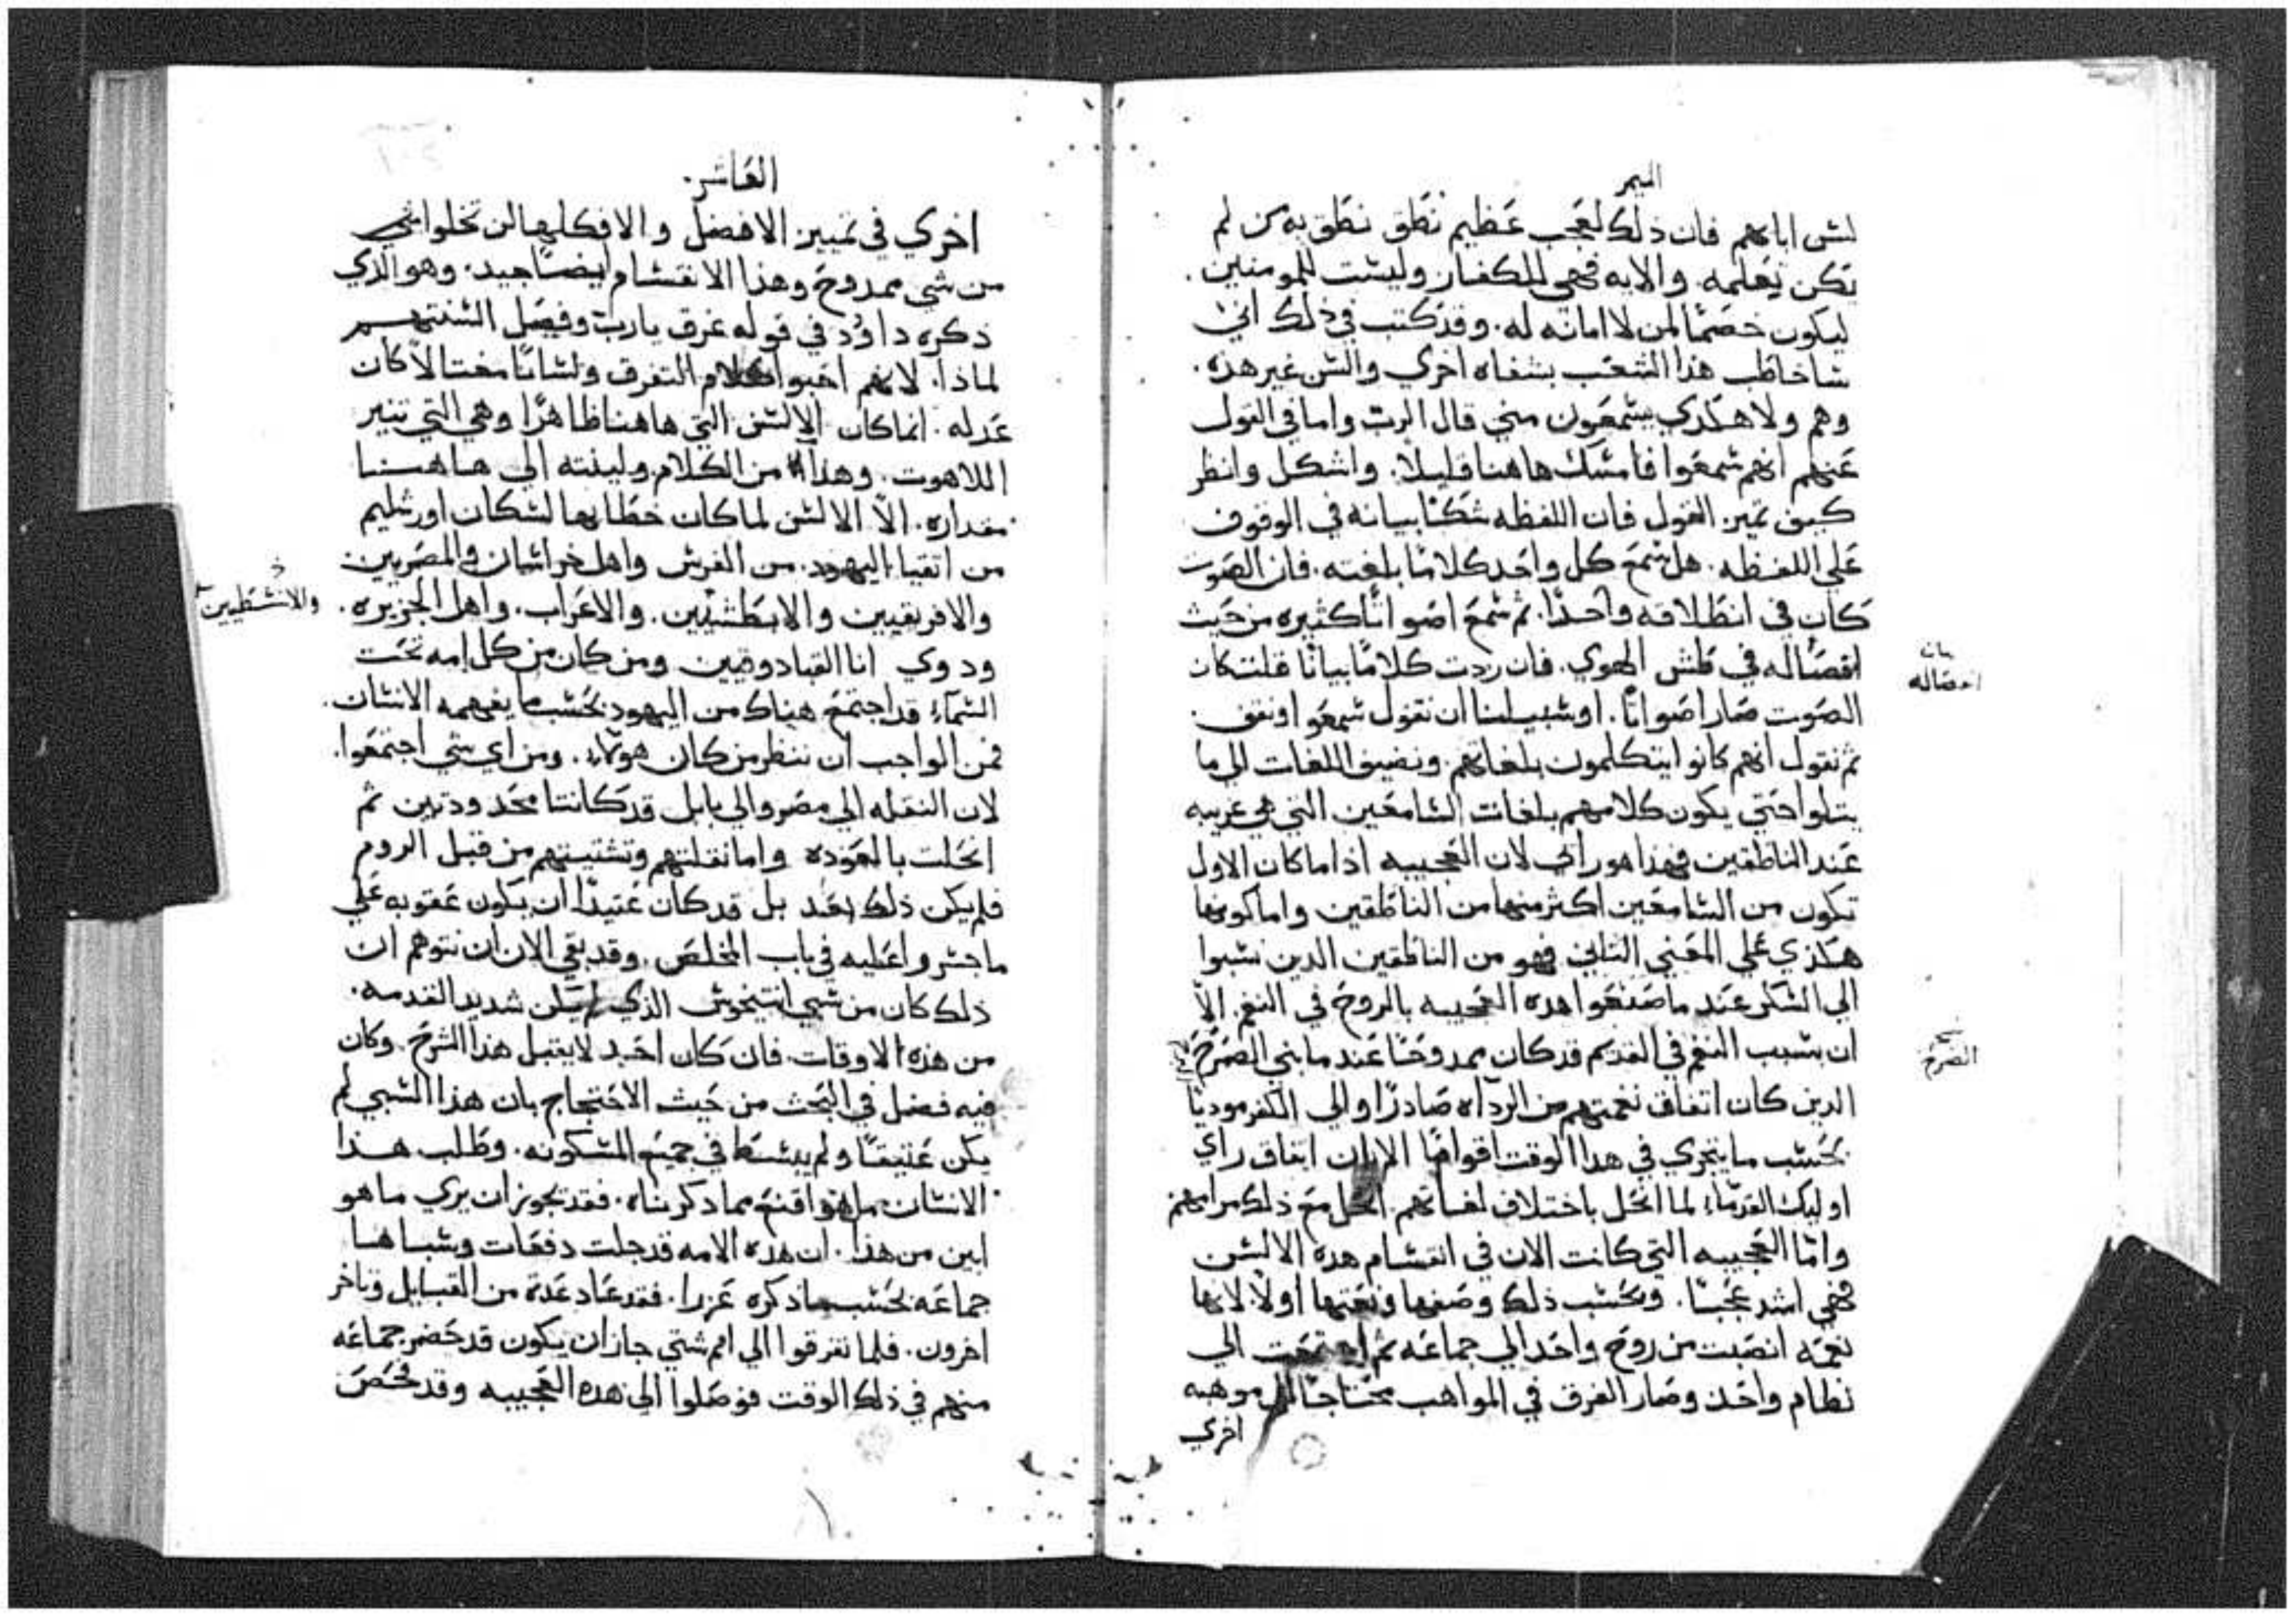 الميمر
لسن اباهم فان ذلك لعجب عظيم نطق نطق به من لم
تكن تعلمه والايه فهي للكفار وليست للمومنين .
ليكون خصمًا لمن لا امانه له . وقد كتب في ذلك اني
ساخاطب هذا الشعب بشفاه اخري والسن غير هذه .
وهم ولا هكذي يسمعون مني قال الرب واما في القول
عنهم انهم سمعوا فامسك هاهنا قليلاً . واشكل وانظر
كيف تميز القول فان اللفظه شكًا بيانه في الوقوف
علي اللفظه . هل سمع كل واحد كلامًا بلغته . فان الصوت
كان في انطلاقه واحدًا . ثم سمع اصواتًا كثيره من حيث
انفصاله في طسن الهوي . فان ردت كلامًا بيانًا قلت كان
الصوت صار اصواتًا . او سبيلنا ان نقول سمعوا ونقف
ثم نقول انهم كانوا يتكلمون بلغاتهم ونضيف اللغات الي ما
يتلوا حتي يكون كلامهم بلغات السامعين التي هي غريبه
عند الناطقين فهذا هو راي لان العجيبه اذا ما كان الاول
تكون من السامعين اكثر منها من الناطقين واما كونها
هكذي علي المعني الثاني فهو من الناطقين الدين نسبوا
الي السكر عند ما صنعوا هده العجيبه بالروح في النغم الاّ
ان بسبب النغم في القديم قد كان ممدوحًا عند ما بني الصرح
الدين كان اتفاق نغمتهم من الرداه صادرًا والي الكفر موديًا
بحسب ما يتجري في هدا الوقت اقوامًا الا ان اتفاق راي
اوليك القدماء لما انحل باختلاف لغاتهم انحل مع ذلك مرامهم
وامّا العجيبه التي كانت الان في انقسام هده الالسن
فهي اشد عجبًا . وبحسب ذلك وصفها ونعتها اولاً لانها
نعمه انصبت من روح واحد الي جماعه ثم اجتمعت الي
نظام واحد وصار الفرق في المواهب محتاجًا الي موهبه
اخري
بيان
انفصاله
الصرح
العاشر .
اخري في تمييز الافضل والافكلها لن تخلوا
من شي ممدوح وهذا الانقسام ايضًا جيد . وهو الذي
ذكره داوُد في قوله غرق يارب وفصل السنتهم
لماذا . لانهم احبوا كلام التغرق ولسانًا مغتالاً كان
عدله . انما كان الالسن التي هاهنا ظاهرًا وهي التي تنير
اللاهوت . وهذا من الكلام وليلته الي هاهنا
مقداره . الاّ الالسن لما كان خطابها لسكان اورشليم
من اتقيا اليهود . من الفرس واهل خراسان والمصريين
والافريقيين والابطشيين . والاعراب . واهل الجزيره .
ودوي انا القبادوقيين ومن كان من كل امه تحت
السماء قد اجتمع هناك من اليهود بحسب ما يفهمه الانسان .
فمن الواجب ان ننظر من كان هولاء . ومن اي شي اجتمعوا .
لان النقله الي مصر والي بابل قد كانتا محدودتين ثم
انحلت بالعوده واما نقلتهم وتشتيتهم من قبل الروم
فلم يكن ذلك بعد بل قد كان عتيدًا ان يكون عقوبه علي
ما جسروا عليه في باب المخلص . وقد بقي الان ان نتوهم ان
ذلك كان من سبي انتيخوس الذي لم يكن شديد القدمه .
من هذه الاوقات فان كان احد لا يقبل هذا الشرح . وكان
فيه فضل في البحث من حيث الاحتجاج بان هذا السبي لم
يكن عتيقًا ولم ينبسط في جميع المسكونه . وطلب هذا
الانسان ما هو اقنع مما دكرناه . فقد تجوز ان يري ما هو
ابين من هذا . ان هده الامه قد جلت دفعات وسباها
جماعه بحسب ما ذكره عزرا . فقد عاد عده من القبايل وتاخر
اخرون . فلما تفرقوا الي امم شتي جاز ان يكون قد حضر جماعه
منهم في ذلك الوقت فوصلوا الي هده العجيبه وقد فحص
والانسطيين